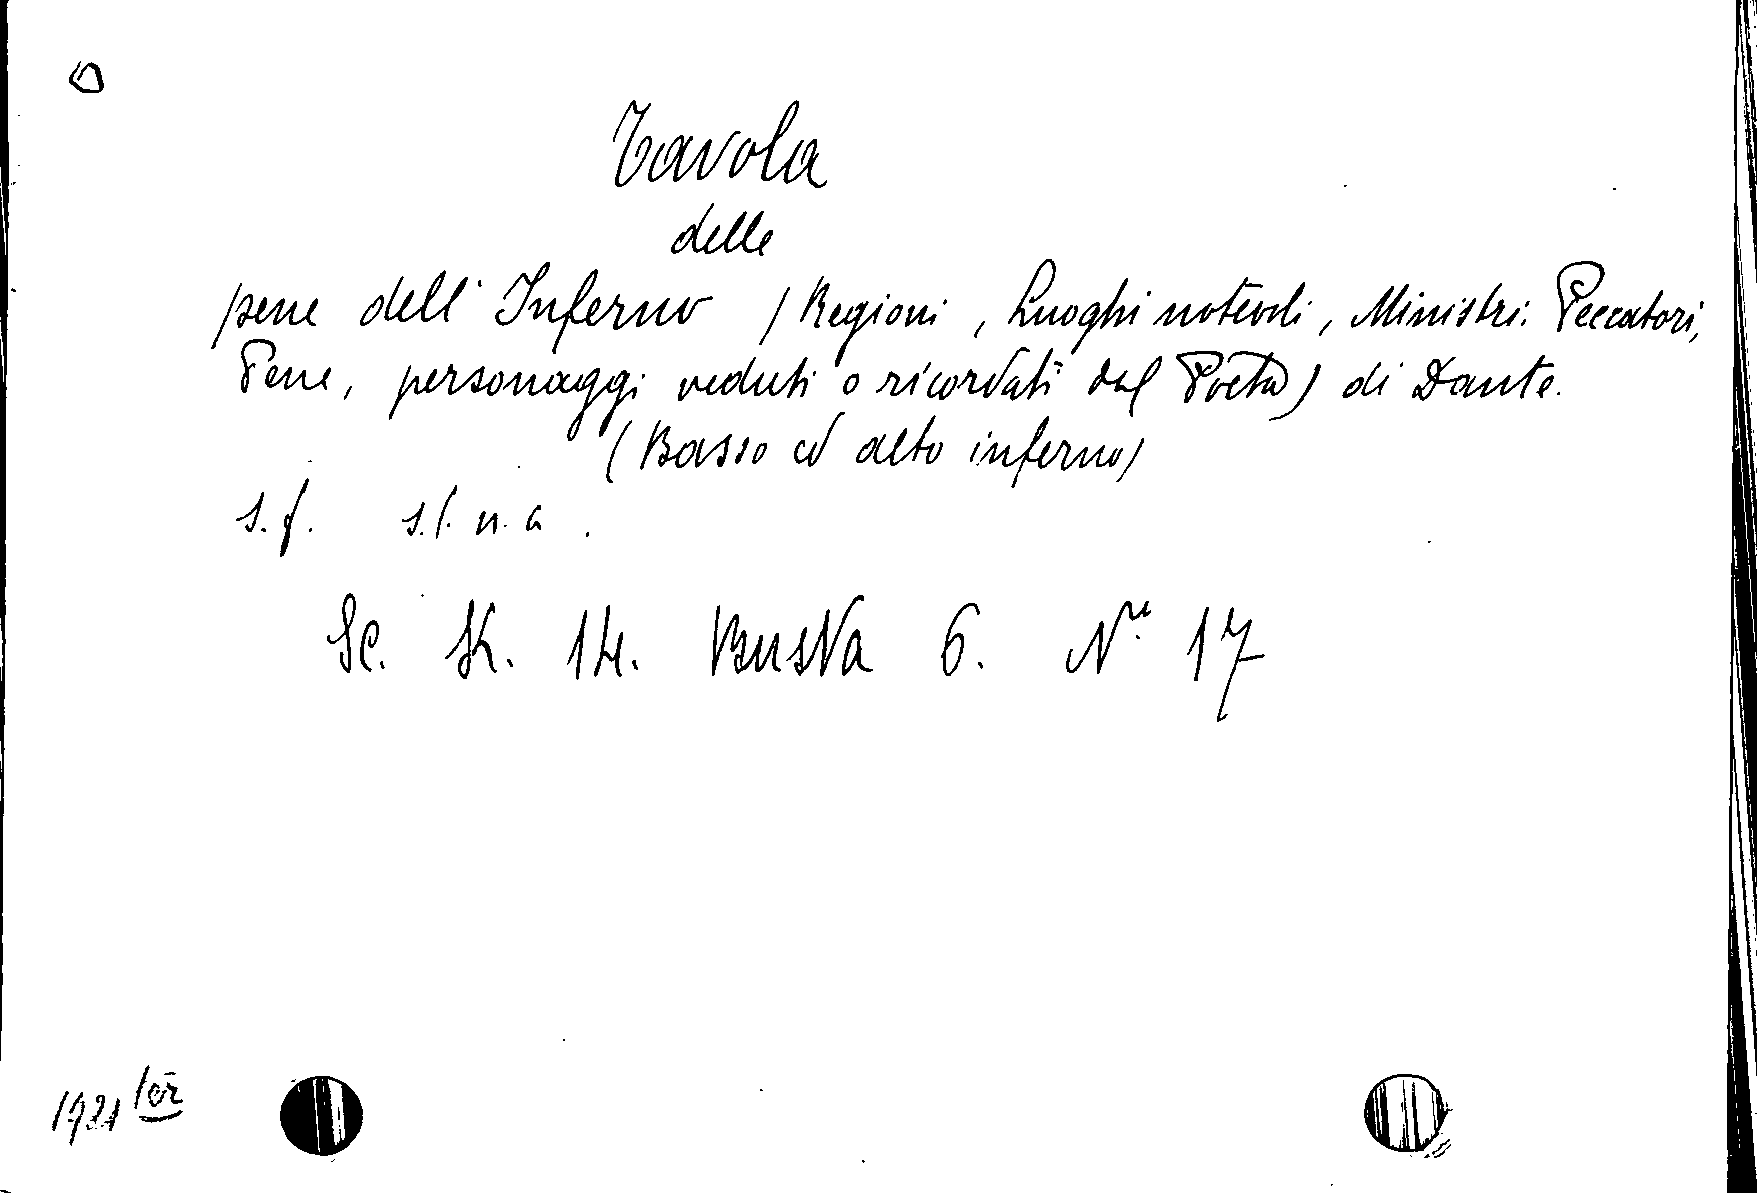 Tavola
delle
pene dell' Inferno (Regioni, Luoghi notevoli, Ministri. Peccatori,
Pene, personaggi veduti o ricordati dal Poeta) di Dante.
(Basso ed alto inferno)
s.f. s.l.n.a.
Sc. St. 14. Busta 6. Nr. 17